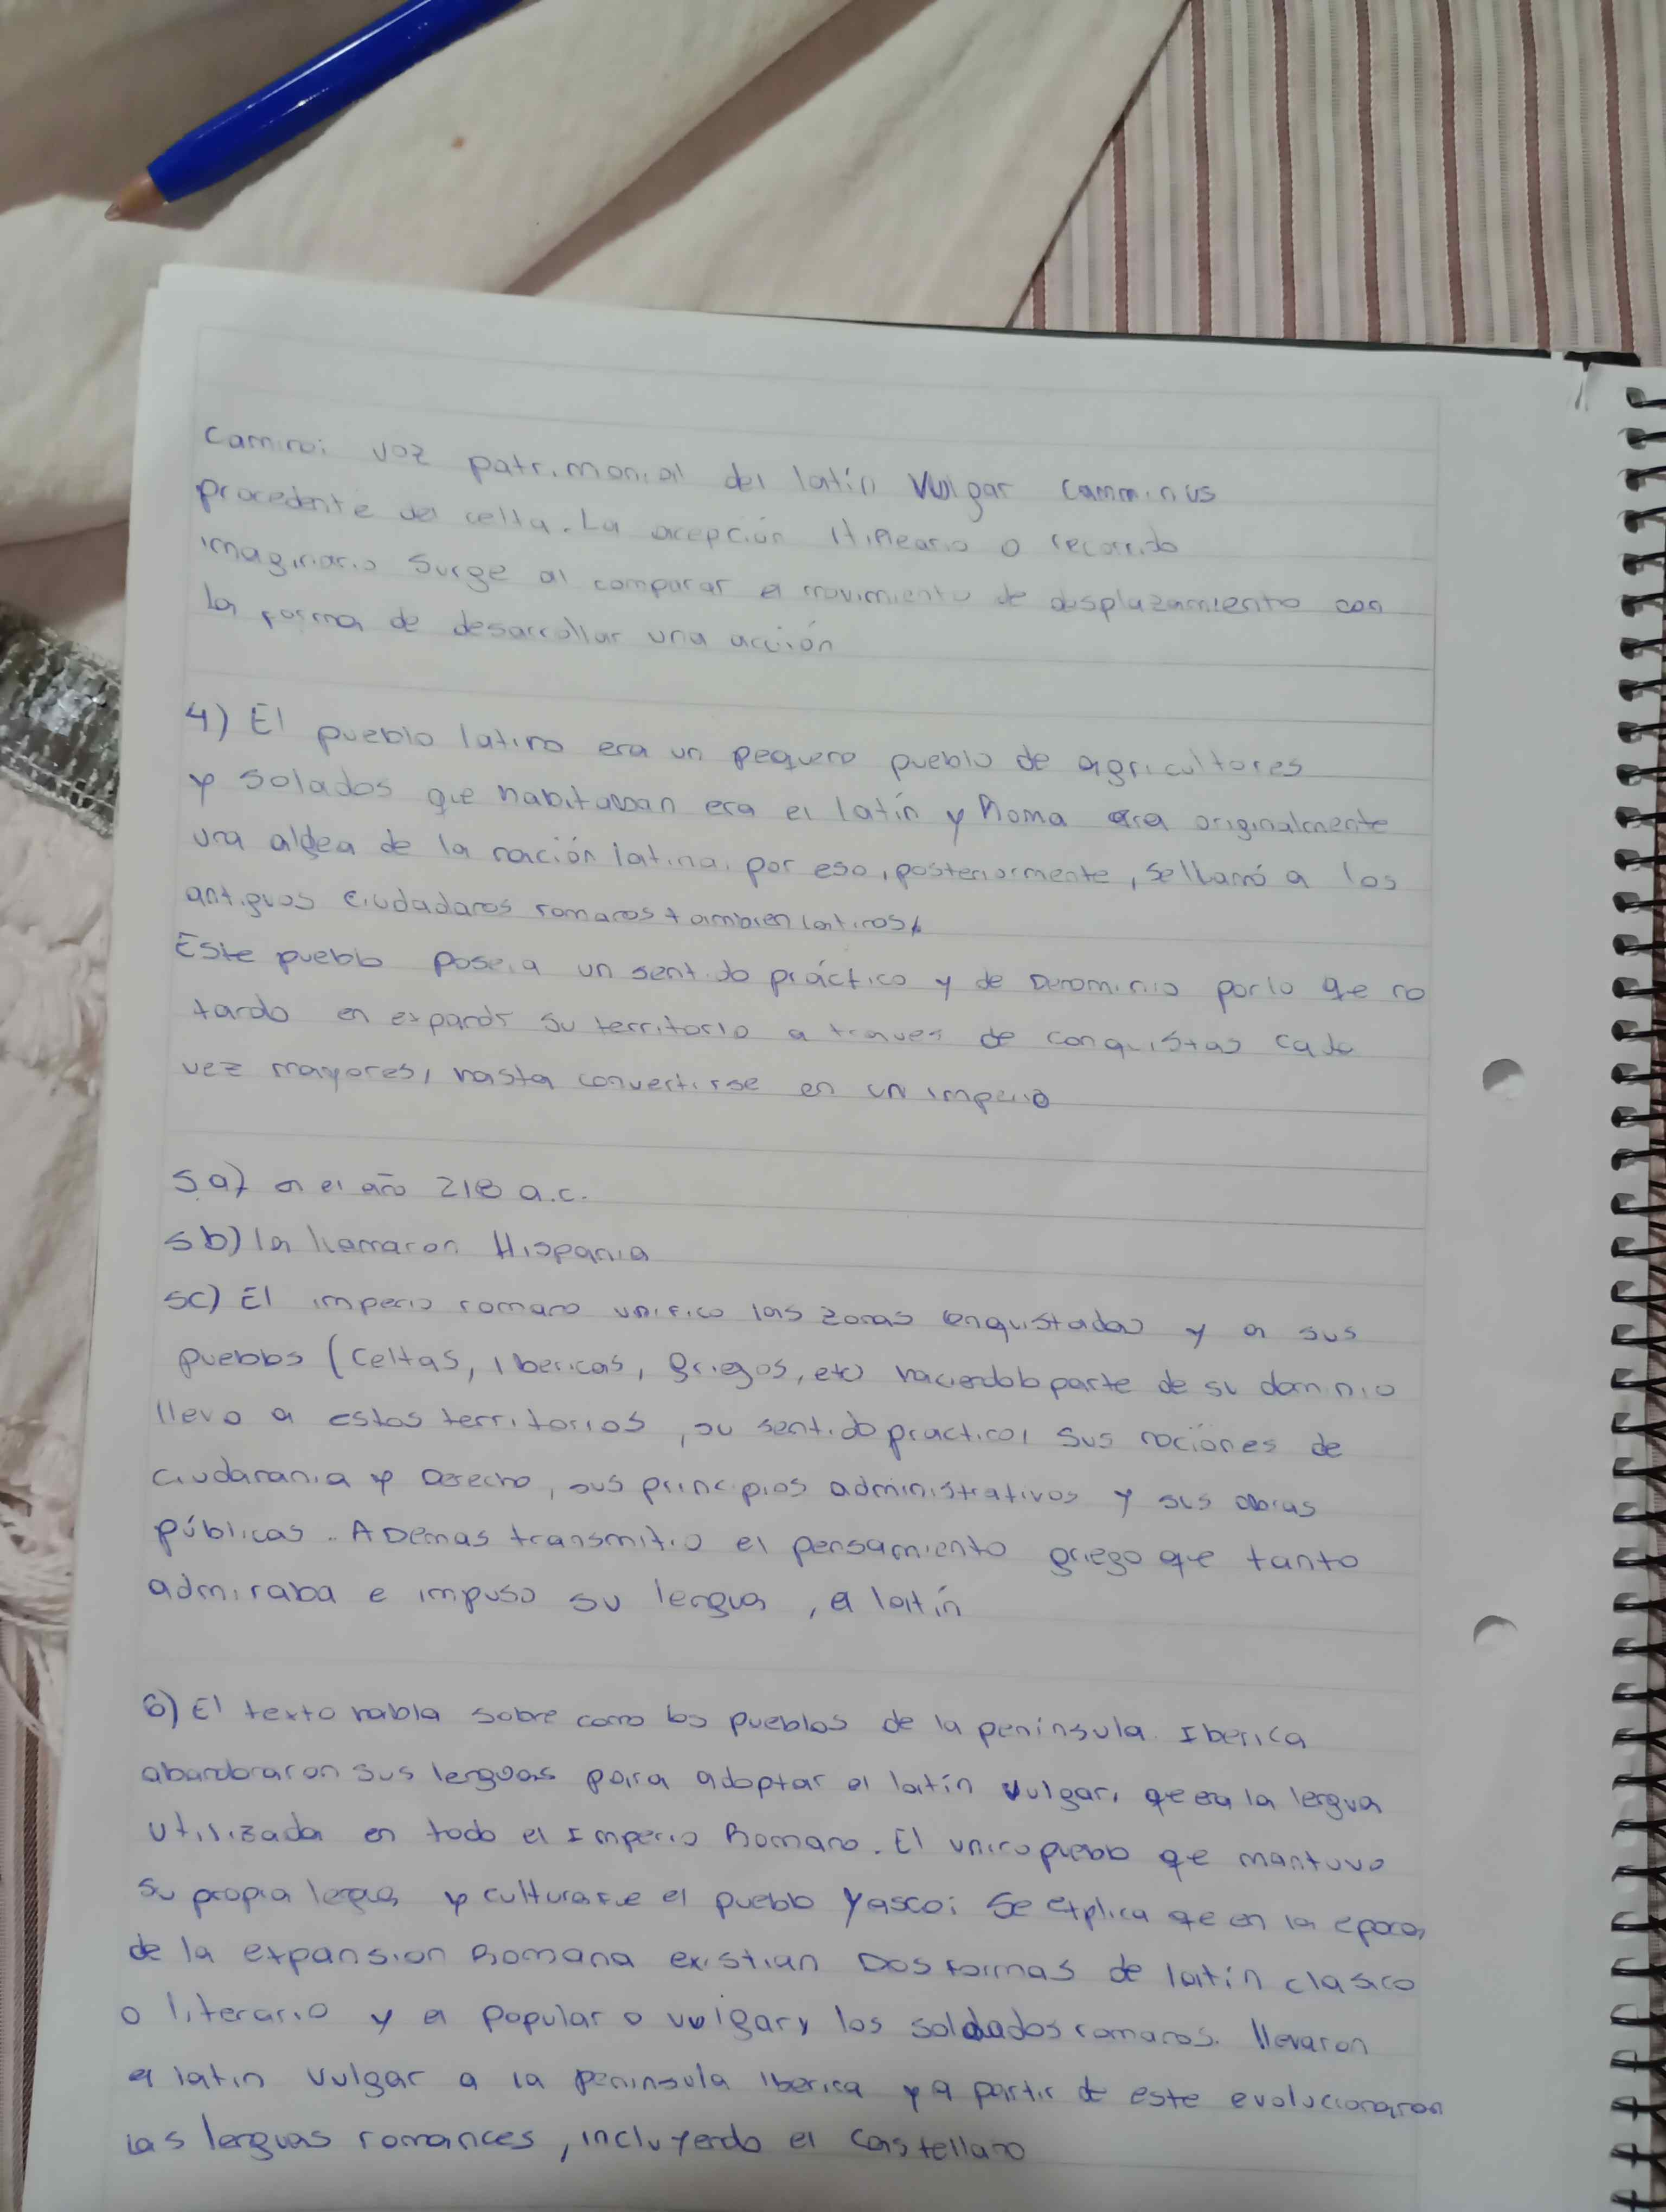 Camino: voz patrimonial del latín Vulgar camminus
procedente del celta. La acepción itineario o recorrido
imaginario surge al comparar el movimiento de desplazamiento con
la forma de desarrollar una acción
4) El pueblo latino era un pequero pueblo de agricultores
y solados que habitaban era el latín y Roma era originalmente
una aldea de la nación latina, por eso, posteriormente, se llamó a los
antiguos ciudadanos romanos tambien latinos,
Este pueblo poseia un sentido práctico y de Denominio por lo qe no
tardo en expandir su territorio a traves de conquistas cada
vez mayores, hasta convertirse en un imperio
5 a) en el año 218 a.c.
5 b) la llamaron Hispania
5c) El imperio romano unifico las zonas conquistadas y a sus
pueblos (celtas, ibericas, griegos, etc) haciendolo parte de su dominio
llevo a estos territorios, su sentido practico, sus nociones de
ciudarania y Derecho, sus principios administrativos y sus obras
públicas. ADemas transmitio el pensamiento griego qe tanto
admiraba e impuso su lengua, el latín
6) El texto habla sobre como los pueblos de la península Iberica
abandonaron sus lenguas para adoptar el latín vulgar, qe era la lengua
utilizada en todo el Imperio Romano. El unico pueblo qe mantuvo
su propia lengua y cultura fue el pueblo Vasco; Se explica qe en la epoca
de la expansion Romana existian Dos formas de latín clasico
o literario y el popular o vulgar y los soldados romanos. llevaron
el latin vulgar a la peninsula iberica y a partir de este evolucionaron
las lenguas romances, incluyendo el castellano